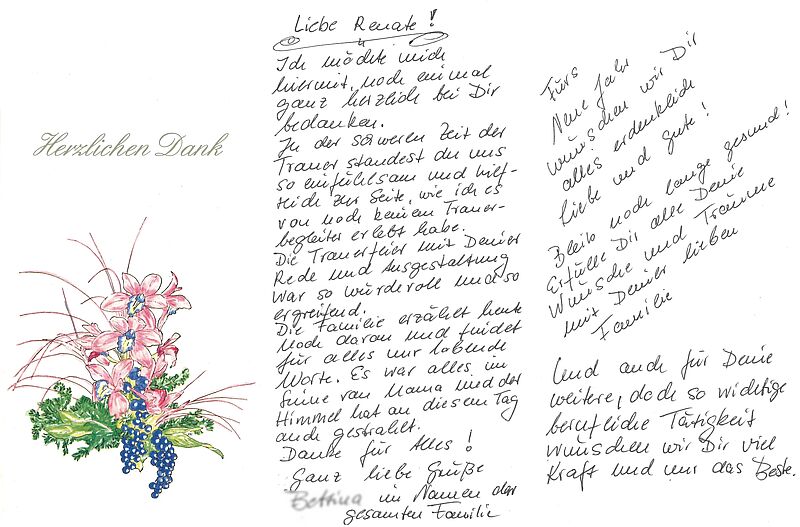 Herzlichen Dank
Liebe Renate!
Ich möchte mich
hiermit, noch einmal
ganz herzlich bei Dir
bedanken.
In der schweren Zeit der
Trauer standest du uns
so einfühlsam und hilf-
reich zur Seite, wie ich es
von noch keinem Trauer-
begleiter erlebt habe.
Die Trauerfeier mit Deiner
Rede und Ausgestaltung
war so würdevoll und so
ergreifend.
Die Familie erzählt heute
noch davon und findet
für alles nur lobende
Worte. Es war alles im
Sinne von Mama und der
Himmel hat an diesem Tag
auch gestrahlt.
Danke für Alles!
Ganz liebe Grüße
Bettina im Namen der
gesamten Familie
Fürs
Neue Jahr
wünschen wir Dir
alles erdenklich
liebe und gute!
Bleib noch lange gesund!
Erfülle Dir alle Deine
Wünsche und Träume
mit Deiner lieben
Familie
Und auch für Deine
weitere, doch so wichtige
berufliche Tätigkeit
wünschen wir Dir viel
Kraft und nur das Beste.